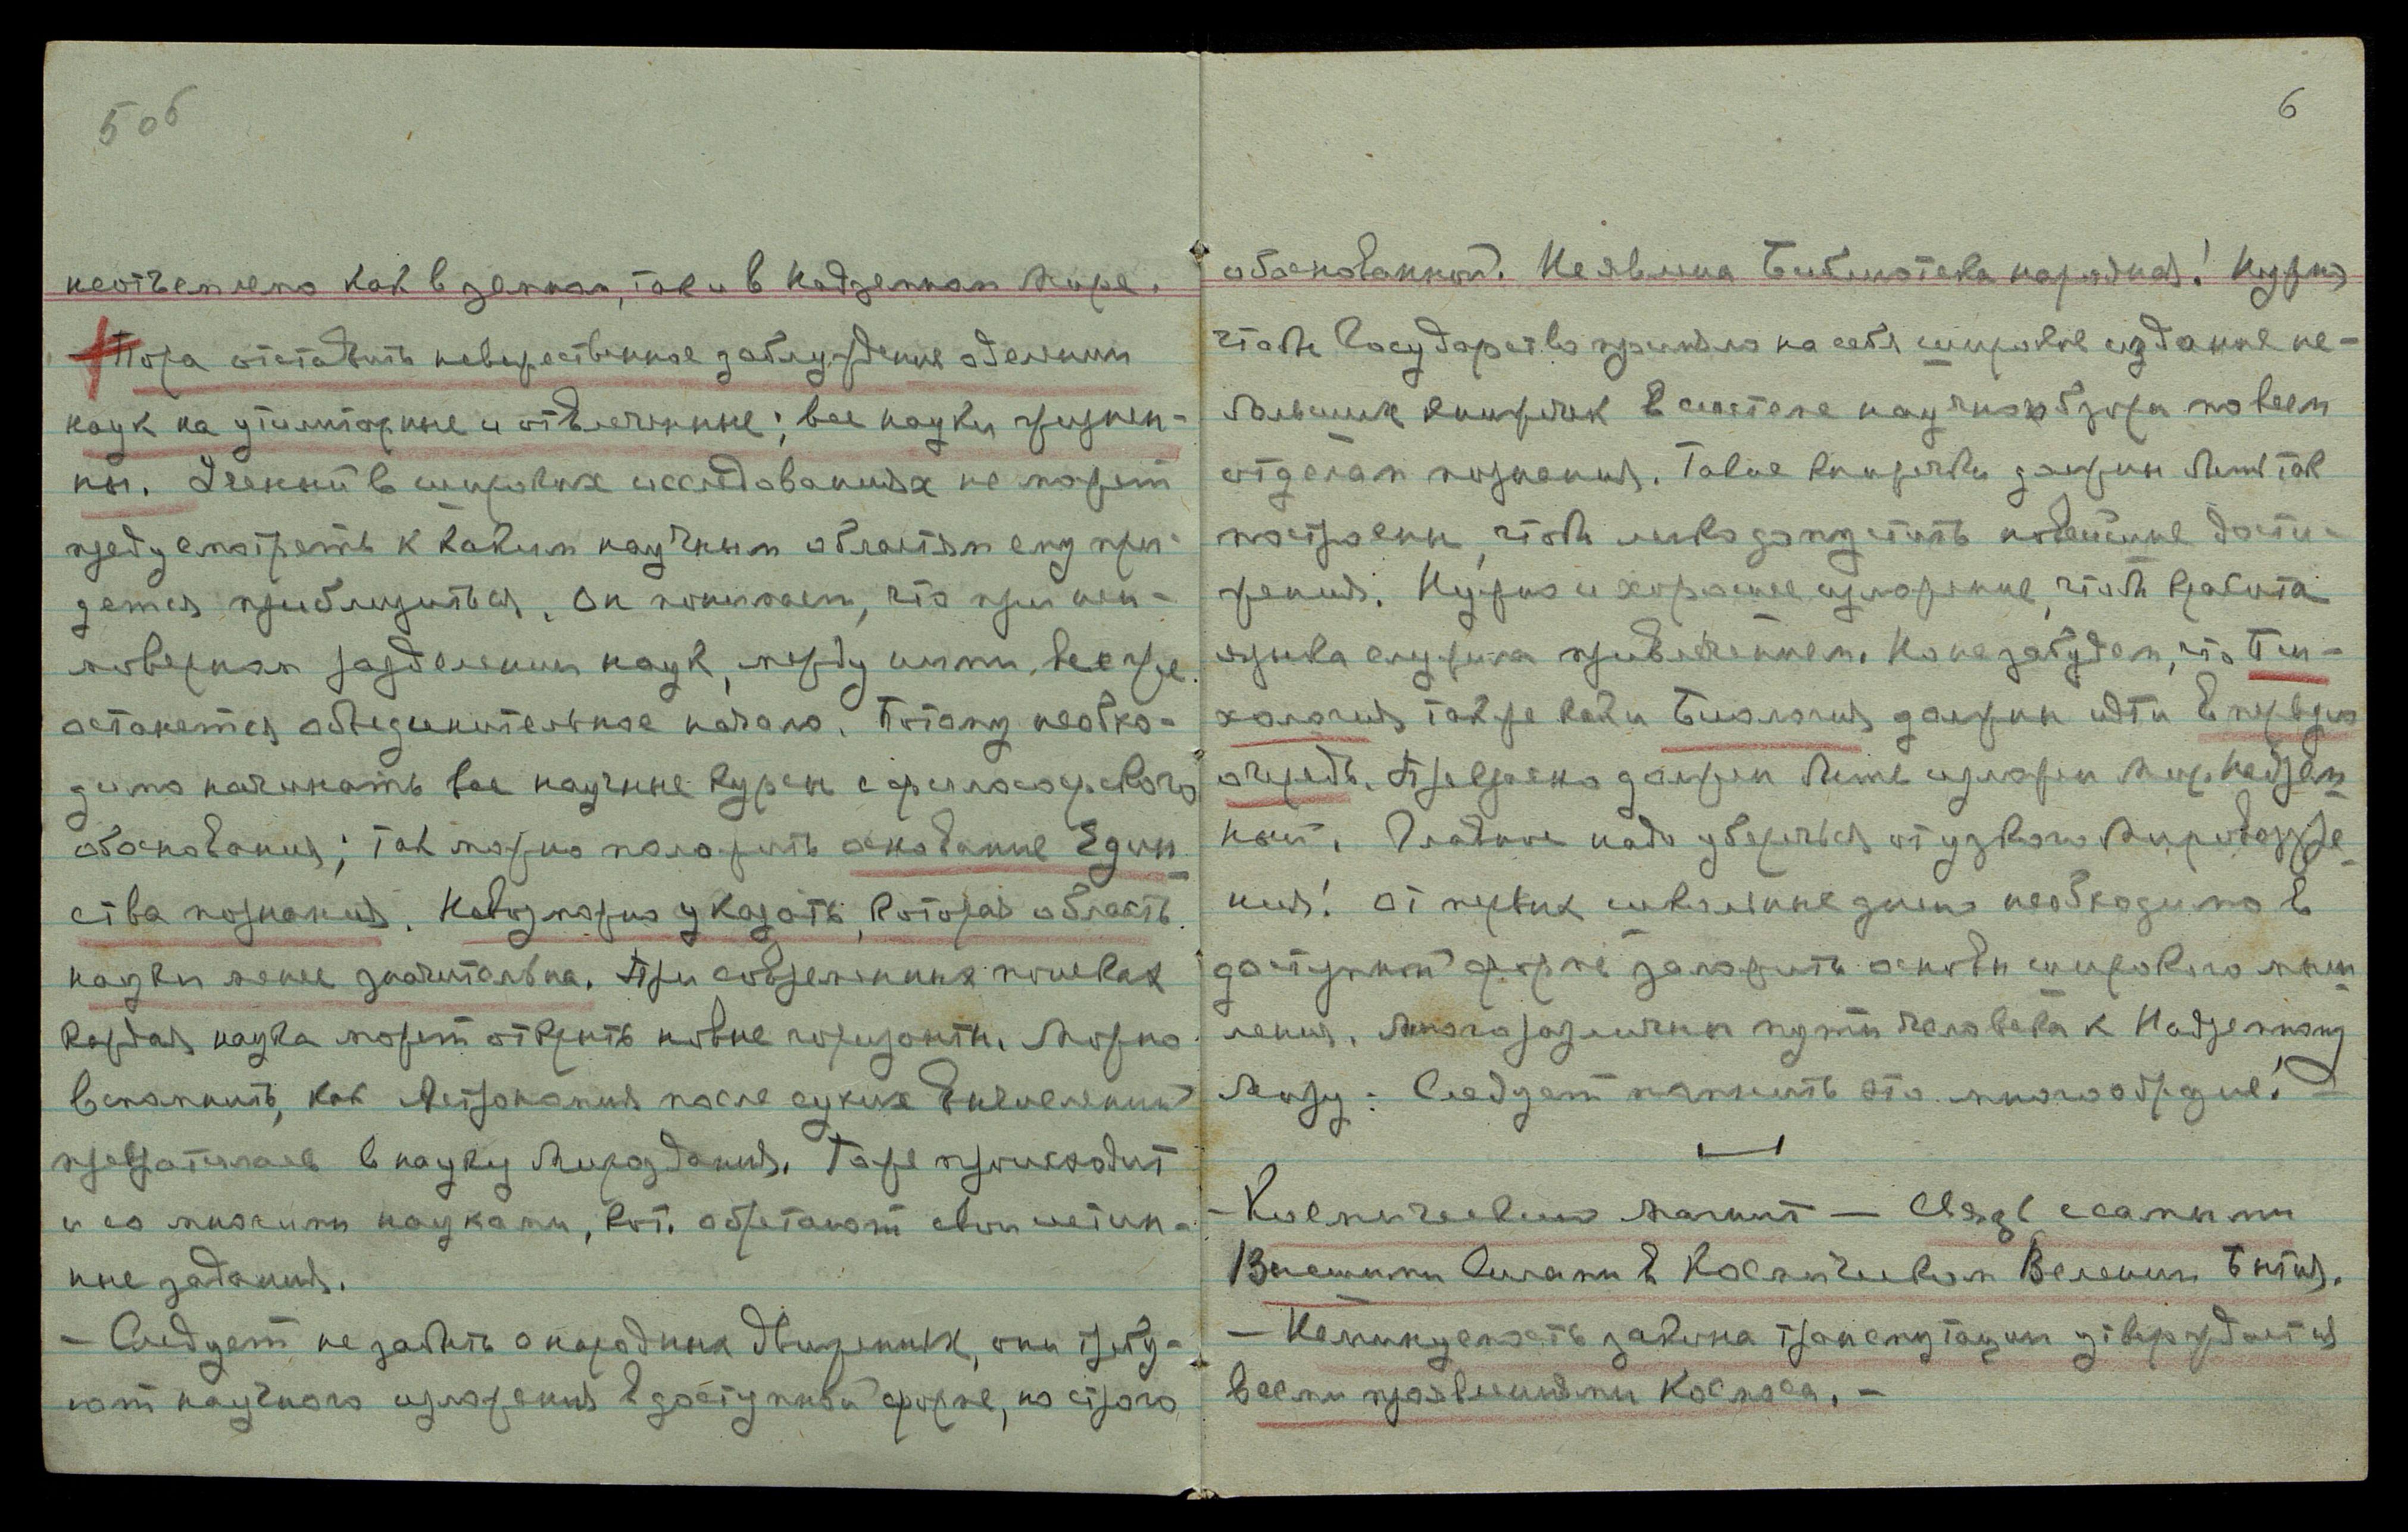 5 об
неотъемлемо как в земном, так и в Надземном Мире.
— Пора оставить невежественное заблуждение о делении
наук на утилитарные и отвлеченные; все науки жизнен-
ны. Ученый в широких исследованиях не может
предусмотреть к каким научным областям ему при-
дется приблизиться. Он понимает, что при неи-
моверном разделении наук, между ними все же
останется объединительное начало. Потому необхо-
димо начинать все научные курсы с философского
обоснования; так можно положить основание Един-
ства познания. Невозможно указать, которая область
науки менее значительна. При современных поисках
каждая наука может открыть новые горизонты. Можно
вспомнить, как Астрономия после сухих вычислений
превратилась в науку Мироздания. То же происходит
и со многими науками, кот. обретают свои истин-
ные задания.
— Следует не забыть о народных движениях, они требу-
ют научного изложения в доступной форме, но строго
6
обоснованной. Не явлена Библиотека народная! Нужно
чтобы Государство приняло на себя широкое издание не-
больших книжек в системе научного обзора по всем
отделам познания. Такие книжки должны быть так
построены, чтобы легко допустить новейшие дости-
жения. Нужно и хорошее изложение, чтобы красота
языка служила привлечением. Но не забудем, что Пси-
хология так же как и Биология должны идти в первую
очередь. Прекрасно должен быть изложен Мир Надзем-
ный. Главное надо уберечься от узкого Мировоззре-
ния! От первых школьных дней необходимо в
доступной форме заложить основы широкого мыш-
ления. Многоразличны пути человека к Надземному
Миру. Следует помнить это многообразие! —
— Космический Магнит — Связь с самыми
Высшими Силами в Космическом Велении Бытия.
— Неминуемость закона трансмутации утверждается
всеми проявлениями Космоса. —